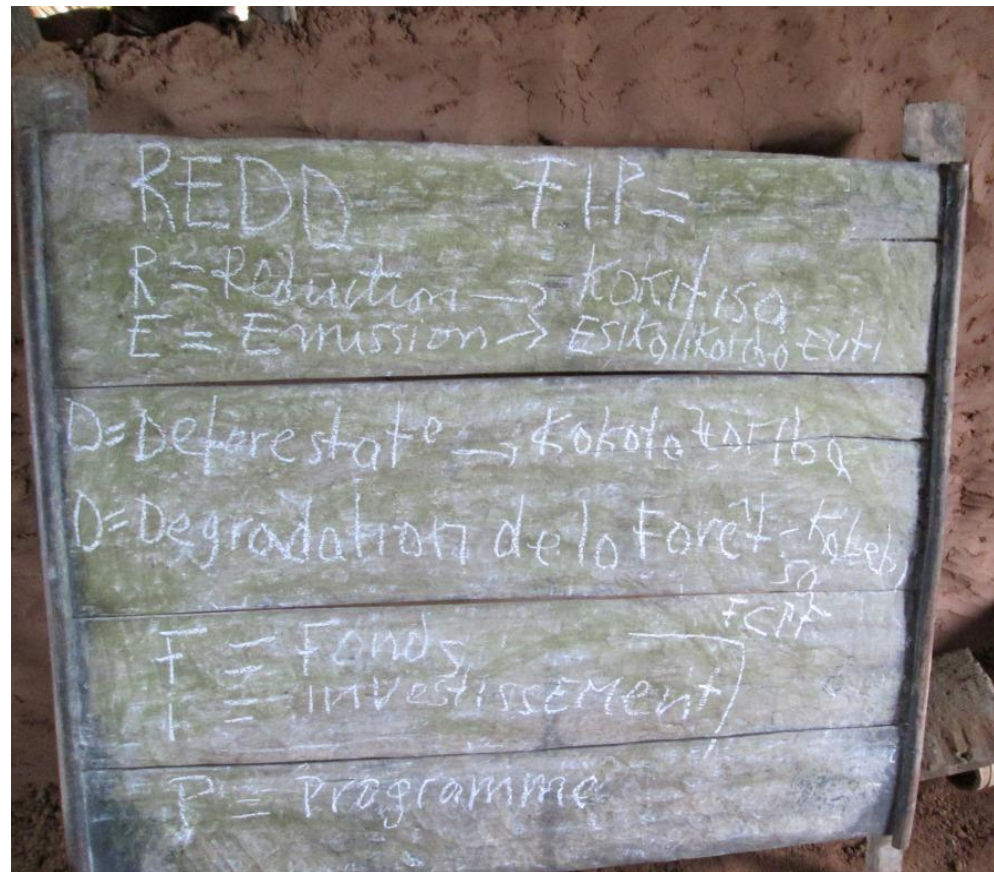 REDD FIP=
R=Reduction → KOKitisa
E = Emission → Esika likoribo EUTi
D=Deforestat° → Kokolo zoriba
D=Degradation de la Forêt - Kobebi
sa
FCPF
F = Fonds
I = investissement
P = Programme